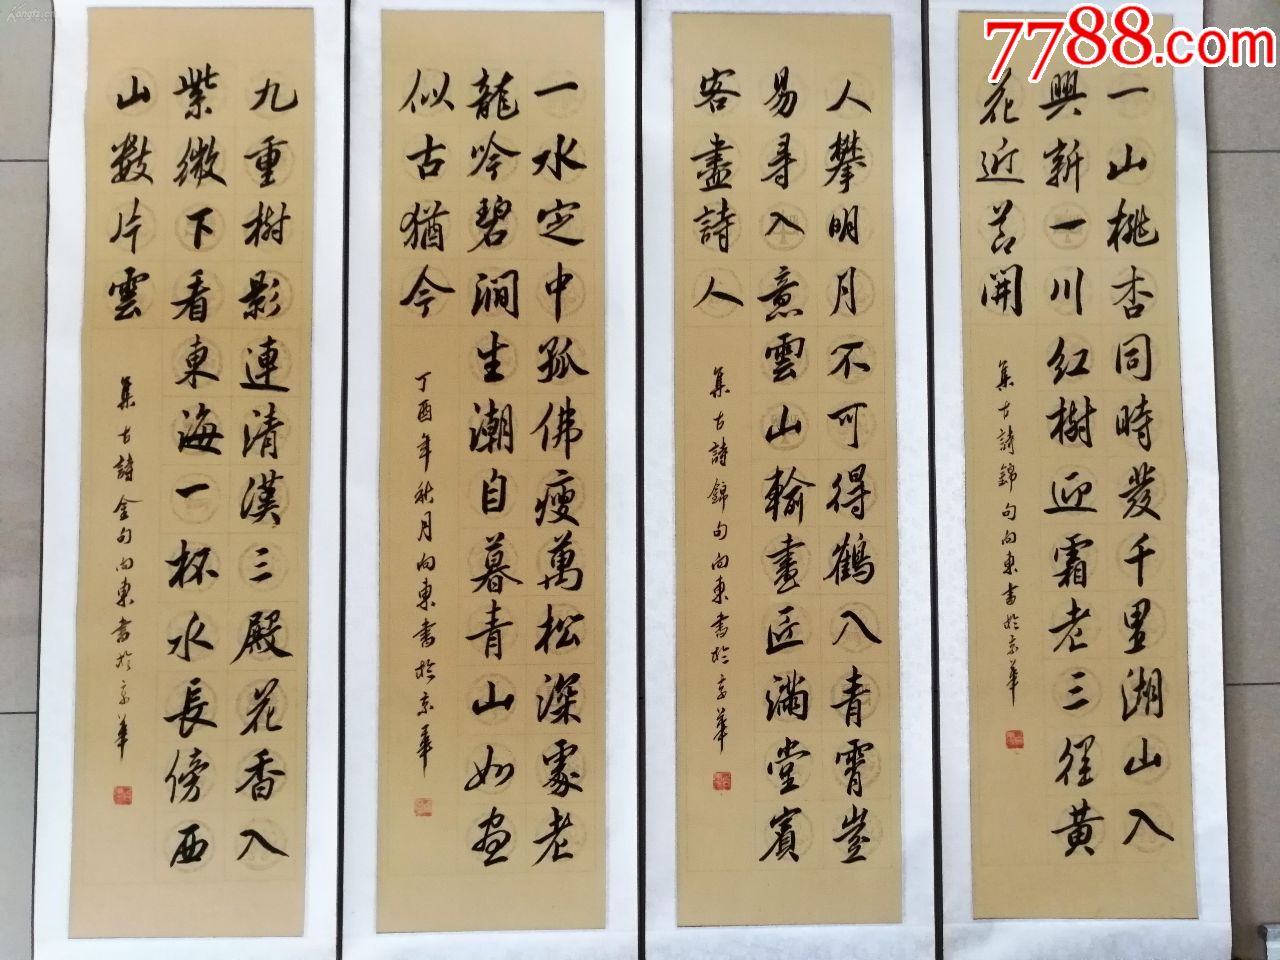 7788.com
一山桃杏同時發千里湖山入
興新一川紅樹迎霜老三徑黃
花近節開
集古詩錦句向東書於京華
人攀明月不可得鶴入青霄豈
易尋入意雲山輸畫匠滿堂賓
客盡詩人
集古詩錦句向東書於京華
一水定中孤佛瘦萬松深處老
龍吟碧澗生潮自暮青山如畫
似古猶今
丁酉年秋月向東書於京華
九重樹影連清漢三殿花香入
紫微下看東海一杯水長傍西
山數片雲
集古詩金句向東書於京華